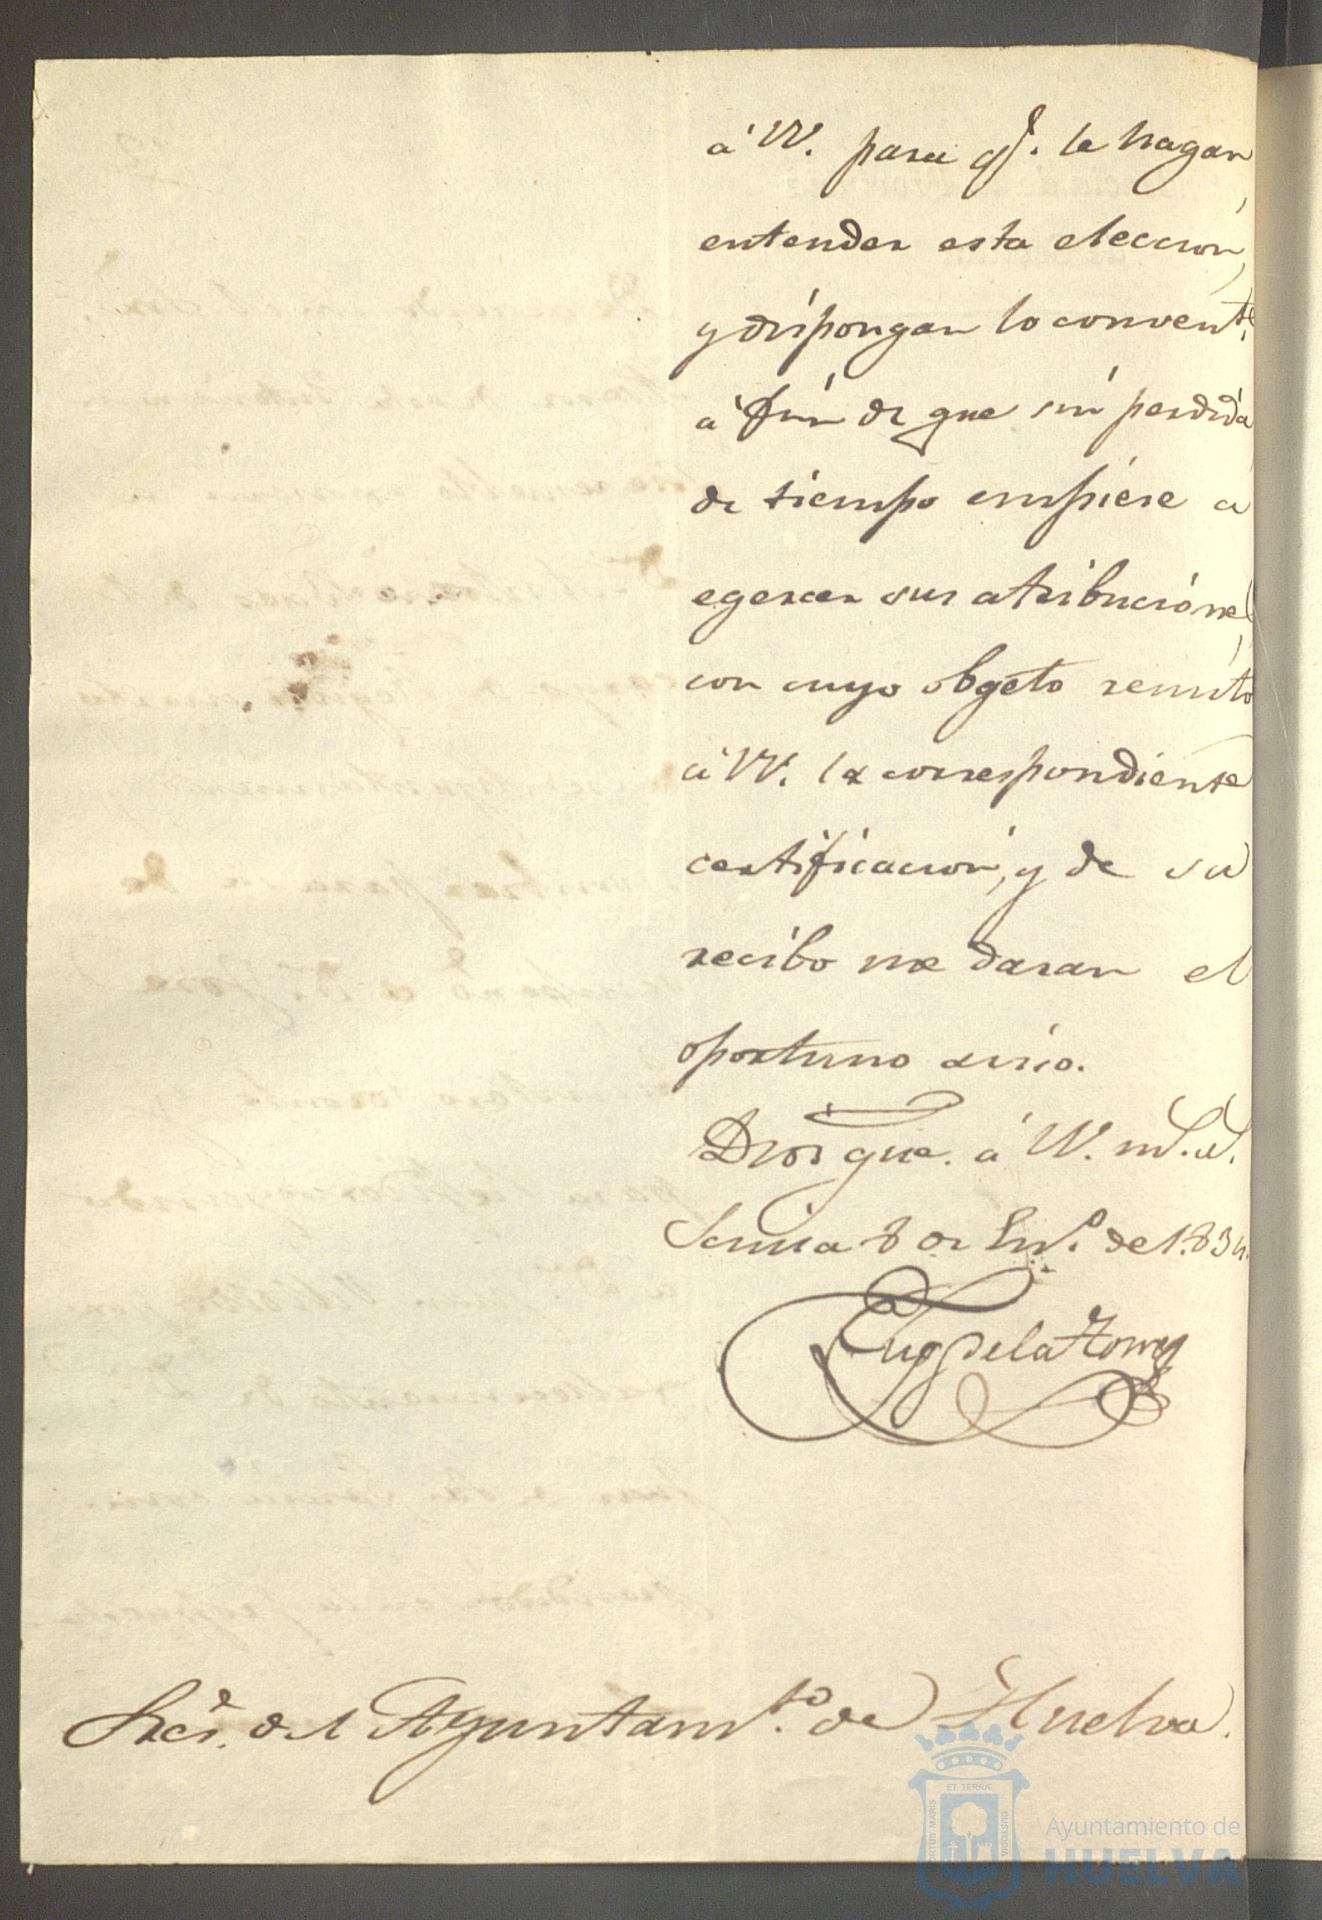 á VV. para qe. le hagan
entender esta eleccion,
y dispongan lo convente.
á fin de que sin perdida
de tiempo empiese a
egercer sus atribuciónes,
con cuyo obgeto remito
á VV. la correspondiente
certificacion, y de su
recibo me daran el
oportuno aviso.
Dios gue. á VV. ms. as.
Sevilla 8 de En.o de 1.834.
Eug de la Torre
Sres. del Ayuntam.to de Huelva.
ET TERRÆ
PORTUS MARIS
CUSTODIA
Ayuntamiento de
HUELVA